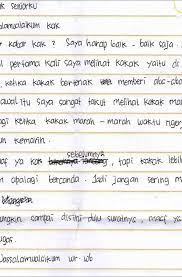 k seniorku
ssalamualaikum kak
kabar kak ? Saya harap baik - baik saja
pertama kali saya melihat kakak yaitu di
ketika kakak berteriak memberi aba-aba
awal itu saya sangat takut melihat kakak ma
agi ketika kakak marah - marah waktu
n kemarin.
sebelumnya
af ya kak , tapi kakak lebih
n apalagi bercanda. Jadi jangan sering m
ungkin sampai disini dulu suratnya, maaf ya
ugas.
assalamualaikum wr. wb